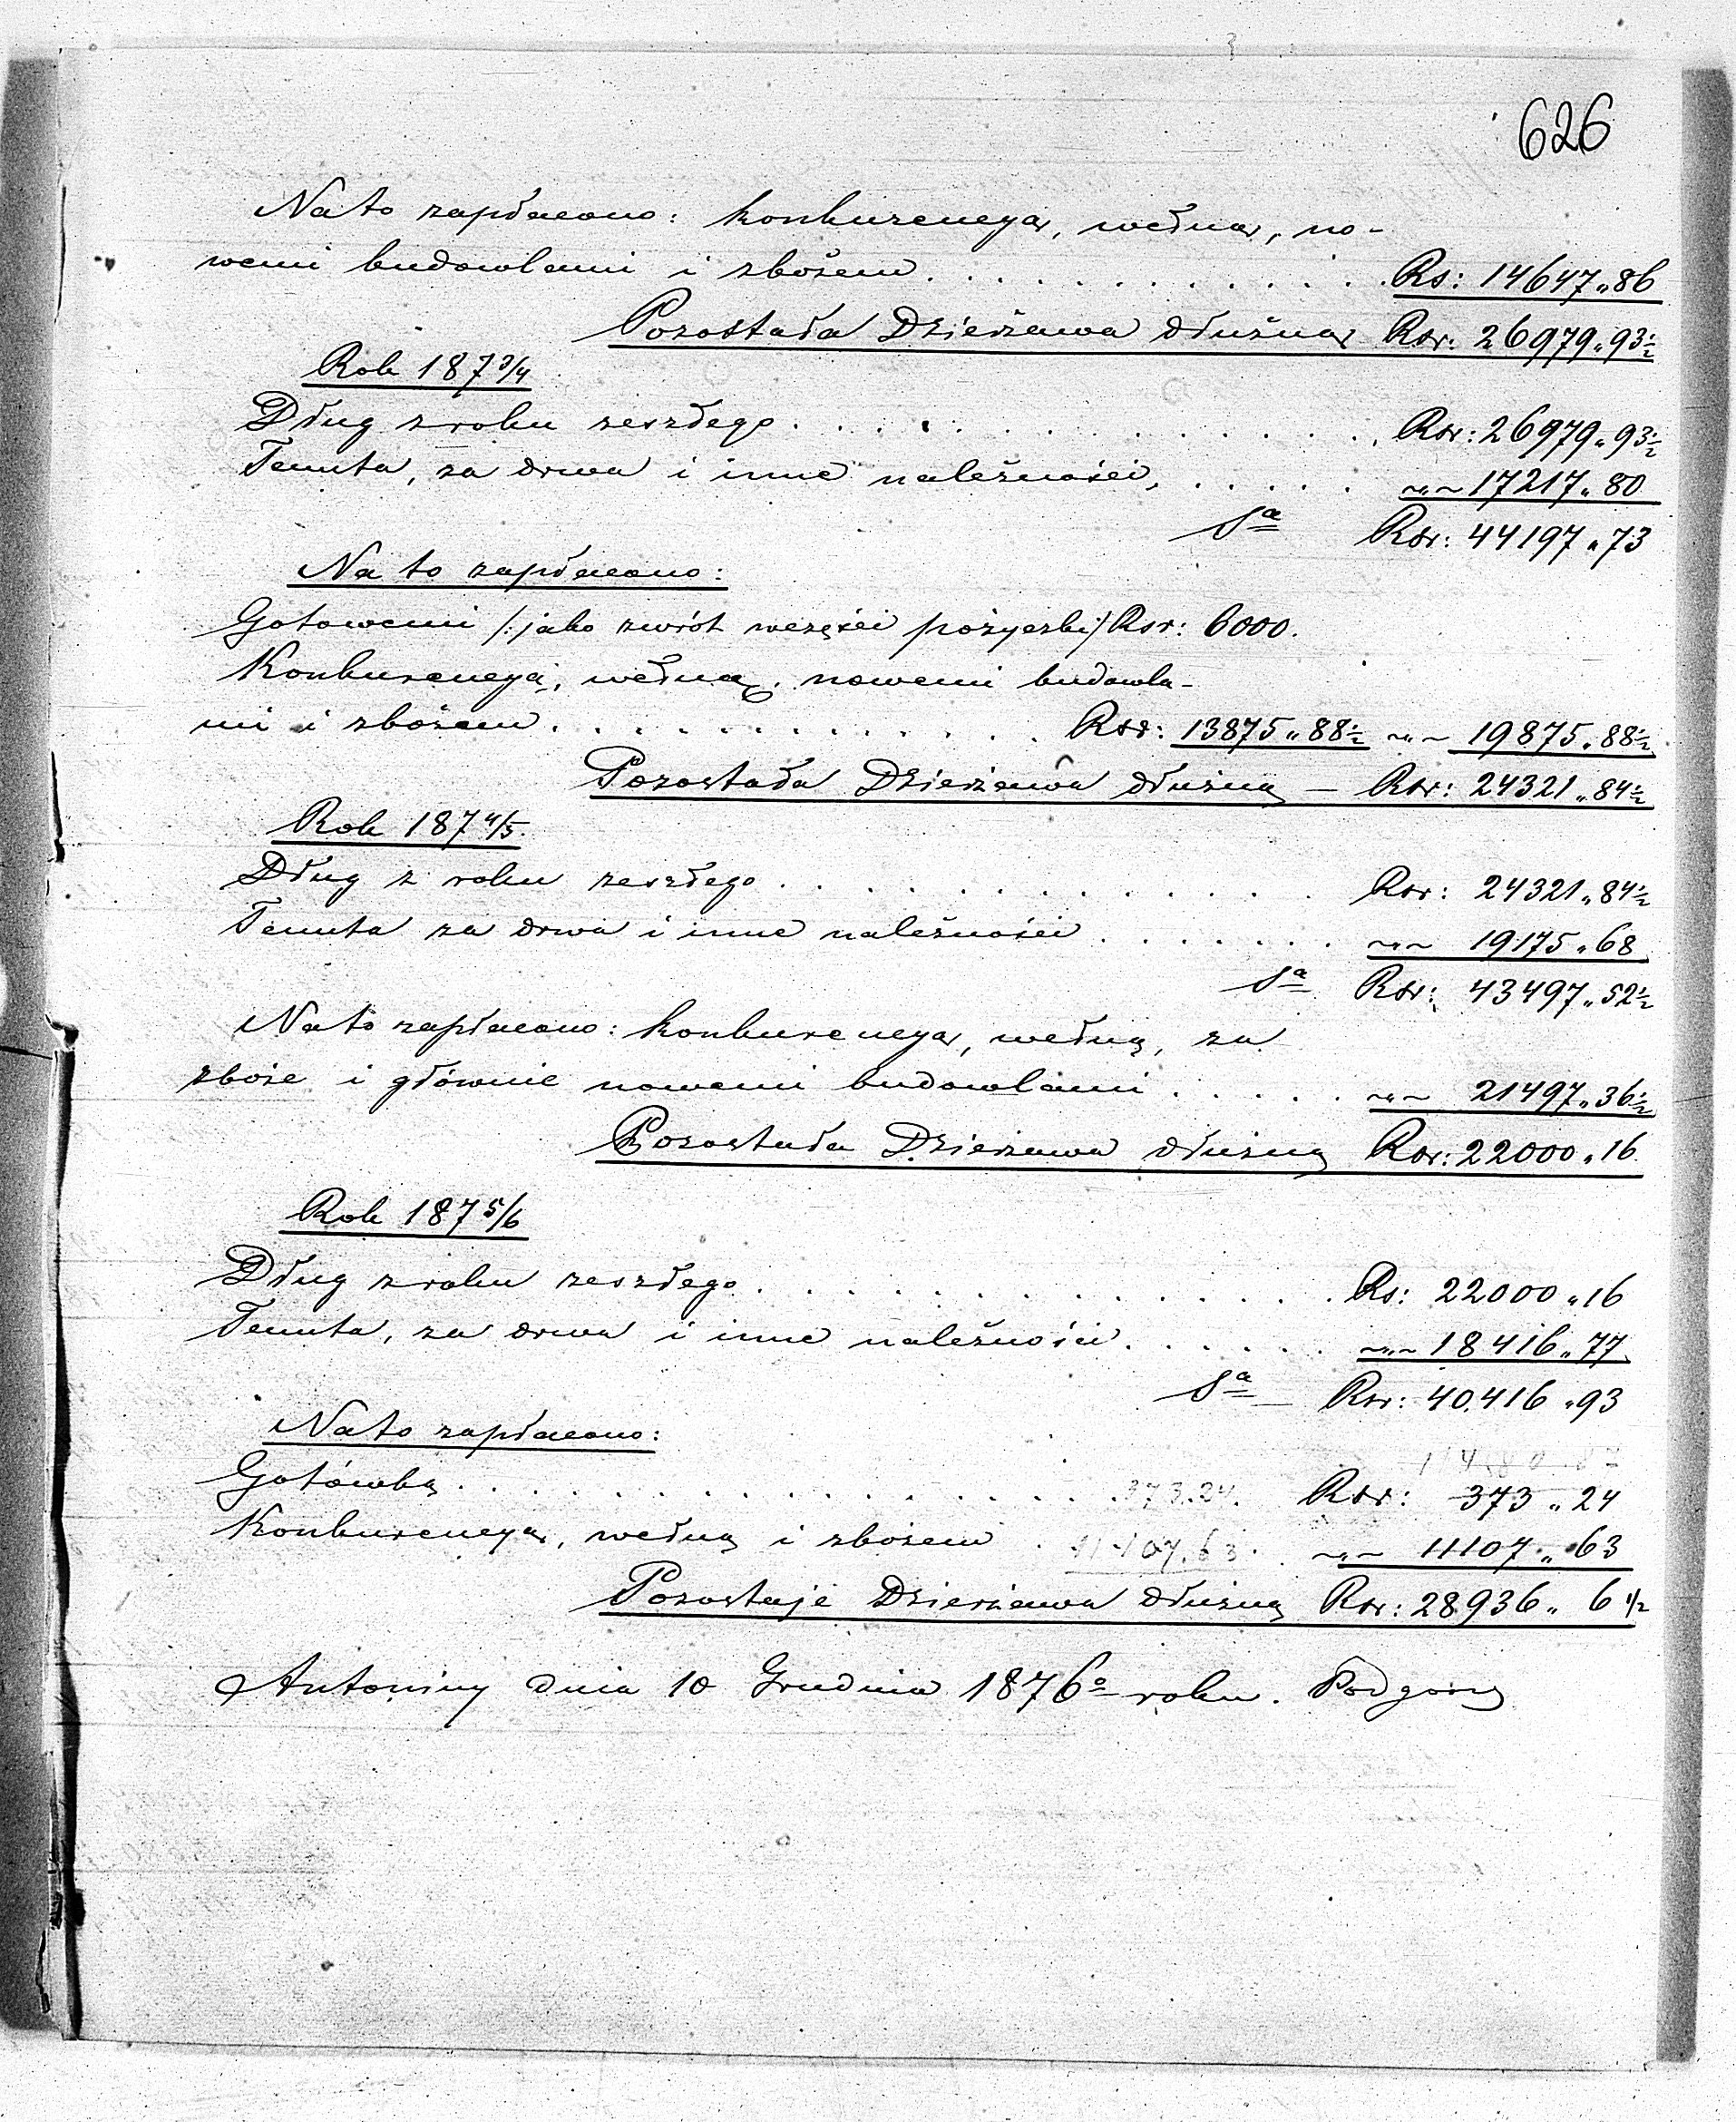 626
Na to zapłacono: konkurencyą, wełną, no-
wemi budowlami i zbożem . . . . . . . . . . . Rs: 14647 „ 86
Pozostała Dzierżawa dłużną Rsr: 26979 „ 93½
Rok 187 3/4
Dług z roku zeszłego . . . . . . . . . . . . . . Rsr: 26979 „ 93½
Tenuta, za drwa i inne należności, . . . . . ~„~ 17217 „ 80
Sᵃ Rsr: 44197 „ 73
Na to zapłacono:
Gotowemi /: jako zwrót części pożyczki :/ Rsr: 6000.
Konkurencyą, wełną, nowemi budowla-
mi i zbożem . . . . . . . . . . . . Rsr: 13875 „ 88½ ~„~ 19875 „ 88½
Pozostała Dzierżawa dłużną — Rsr: 24321 „ 84½
Rok 187 4/5.
Dług z roku zeszłego . . . . . . . . . . . . . Rsr: 24321 „ 84½
Tenuta za drwa i inne należności . . . . . . . ~„~ 19175 „ 68
Sᵃ Rsr: 43497 „ 52½
Na to zapłacono: konkurencyą, wełną, za
zboże i głównie nowemi budowlami . . . . . ~„~ 21497 „ 36½
Pozostała Dzierżawa dłużną Rsr: 22000 „ 16
Rok 187 5/6
Dług z roku zeszłego . . . . . . . . . . . . . . Rs: 22000 „ 16
Tenuta, za drwa i inne należności . . . . . . ~„~ 18416 „ 77
Sᵃ — Rsr: 40.416 „ 93
Na to zapłacono:
Gotówką . . . . . . . . . . . . . . . . 373.24. Rsr: 373 „ 24
Konkurencyą, wełną i zbożem . 11107.63 . ~„~ 11107 „ 63
Pozostaje Dzierżawa dłużną Rsr: 28936 „ 6 1/2
Antoniny dnia 10 Grudnia 1876º roku. Podgórs